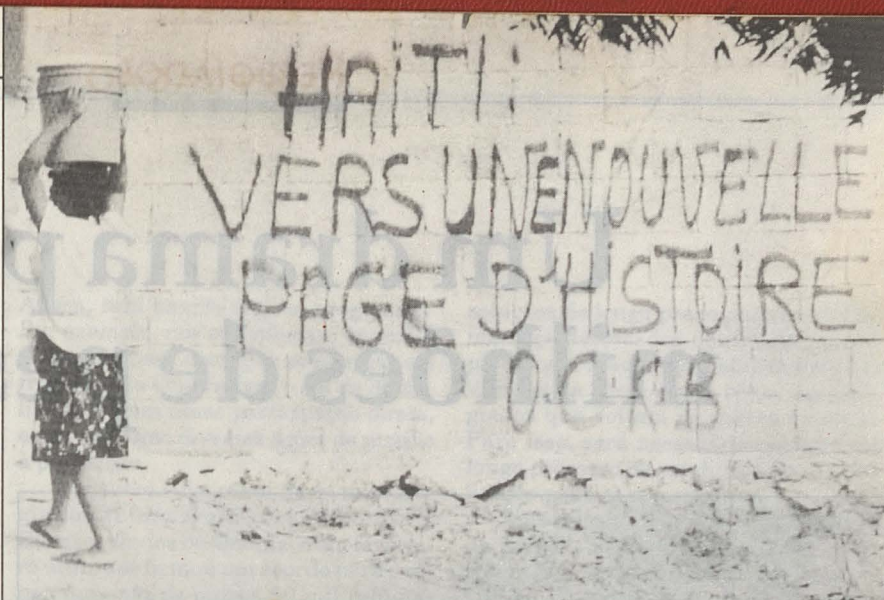 HAiTi :
VERS UNE NOUVELLE
PAGE D'HiSTOiRE
O.C.K.B